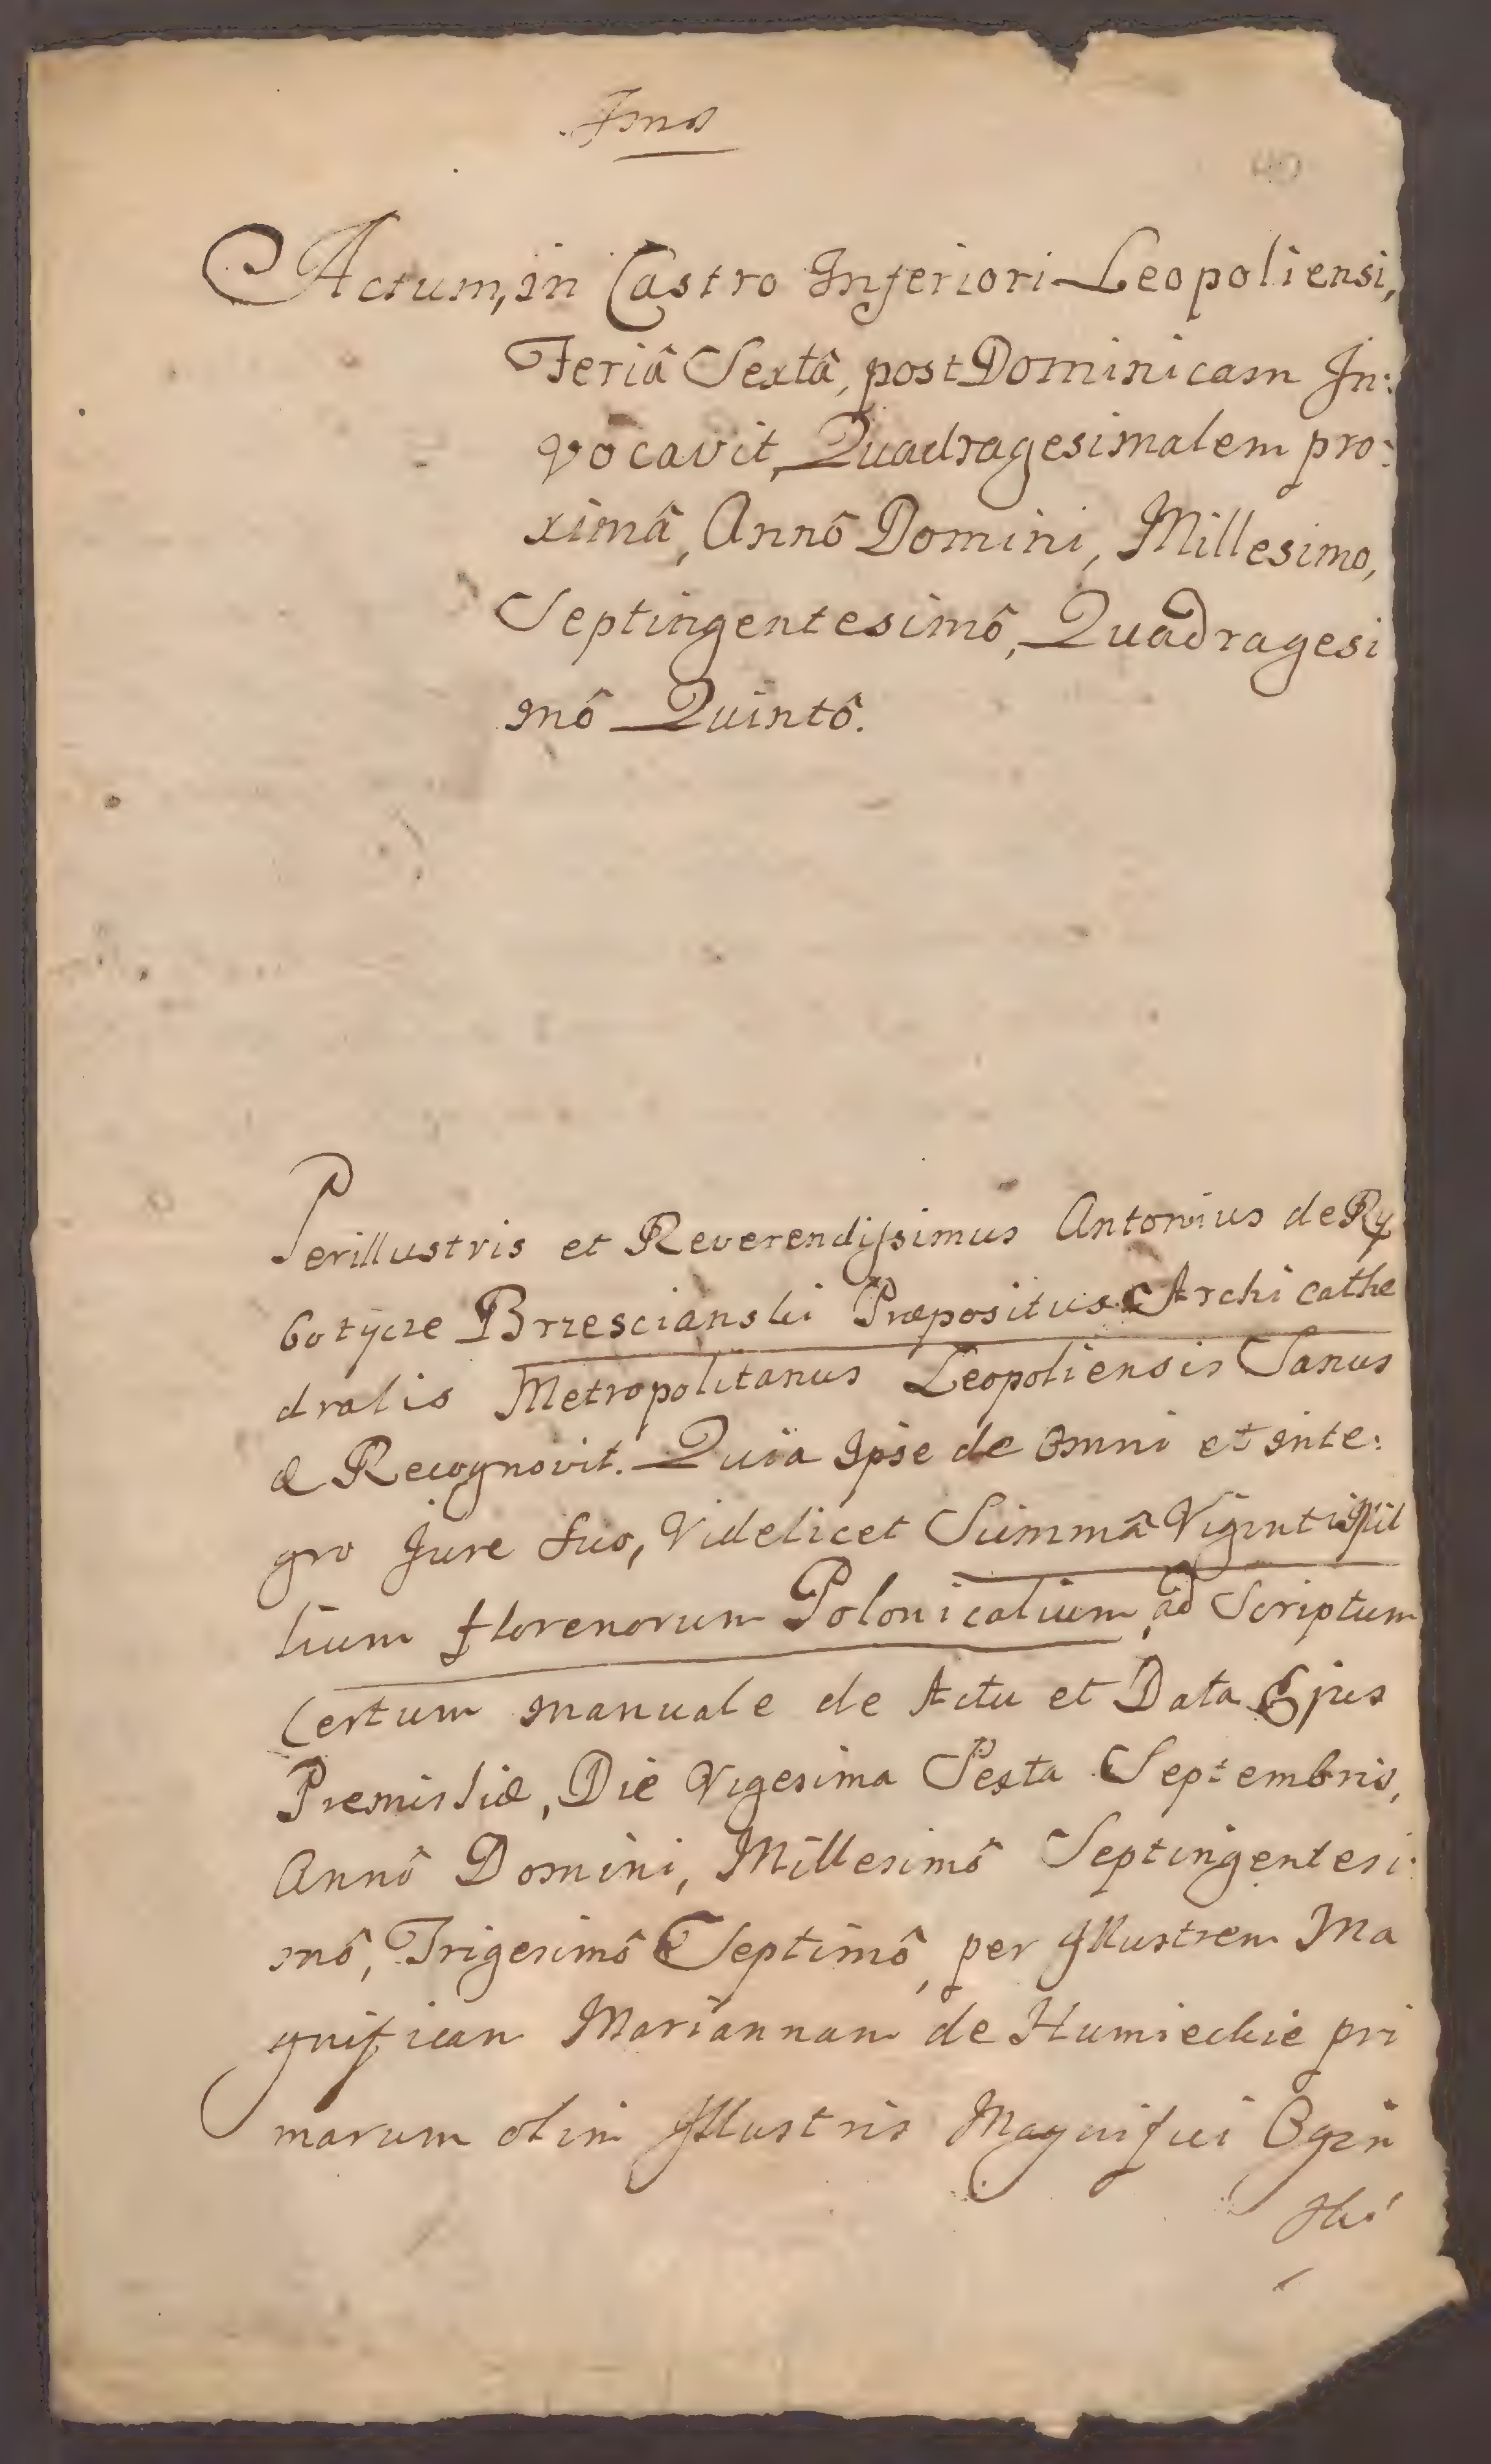 Actum, in Castro Inferiori Leopoliensi,
Feriâ Sextâ, post Dominicam In:
vocavit, Quadragesimalem pro:
ximâ, Annô Domini, Millesimo,
Septingentesimô, Quadragesi
mô Quintô.
Perillustris et Reverendissimus Antonius de Ry
botycze Brzescianski Præpositus Archi Cathe
dralis Metropolitanus Leopoliensis Sanus
& Recognovit. Quia Ipse de Omni et inte:
gro Jure suo, Videlicet Summâ Viginti Mil
lium florenorum Polonicalium, ad Scriptum
Certum manuale de Actu et Data Ejus
Premisliæ, Die Vigesima Sexta Septembris,
Annô Domini, Millesimô Septingentesi:
mô, Trigesimô Septimô, per Illustrem Ma
gnificam Mariannam de Humieckie pri
marum olim Illustris Magnifici Ogin
ski